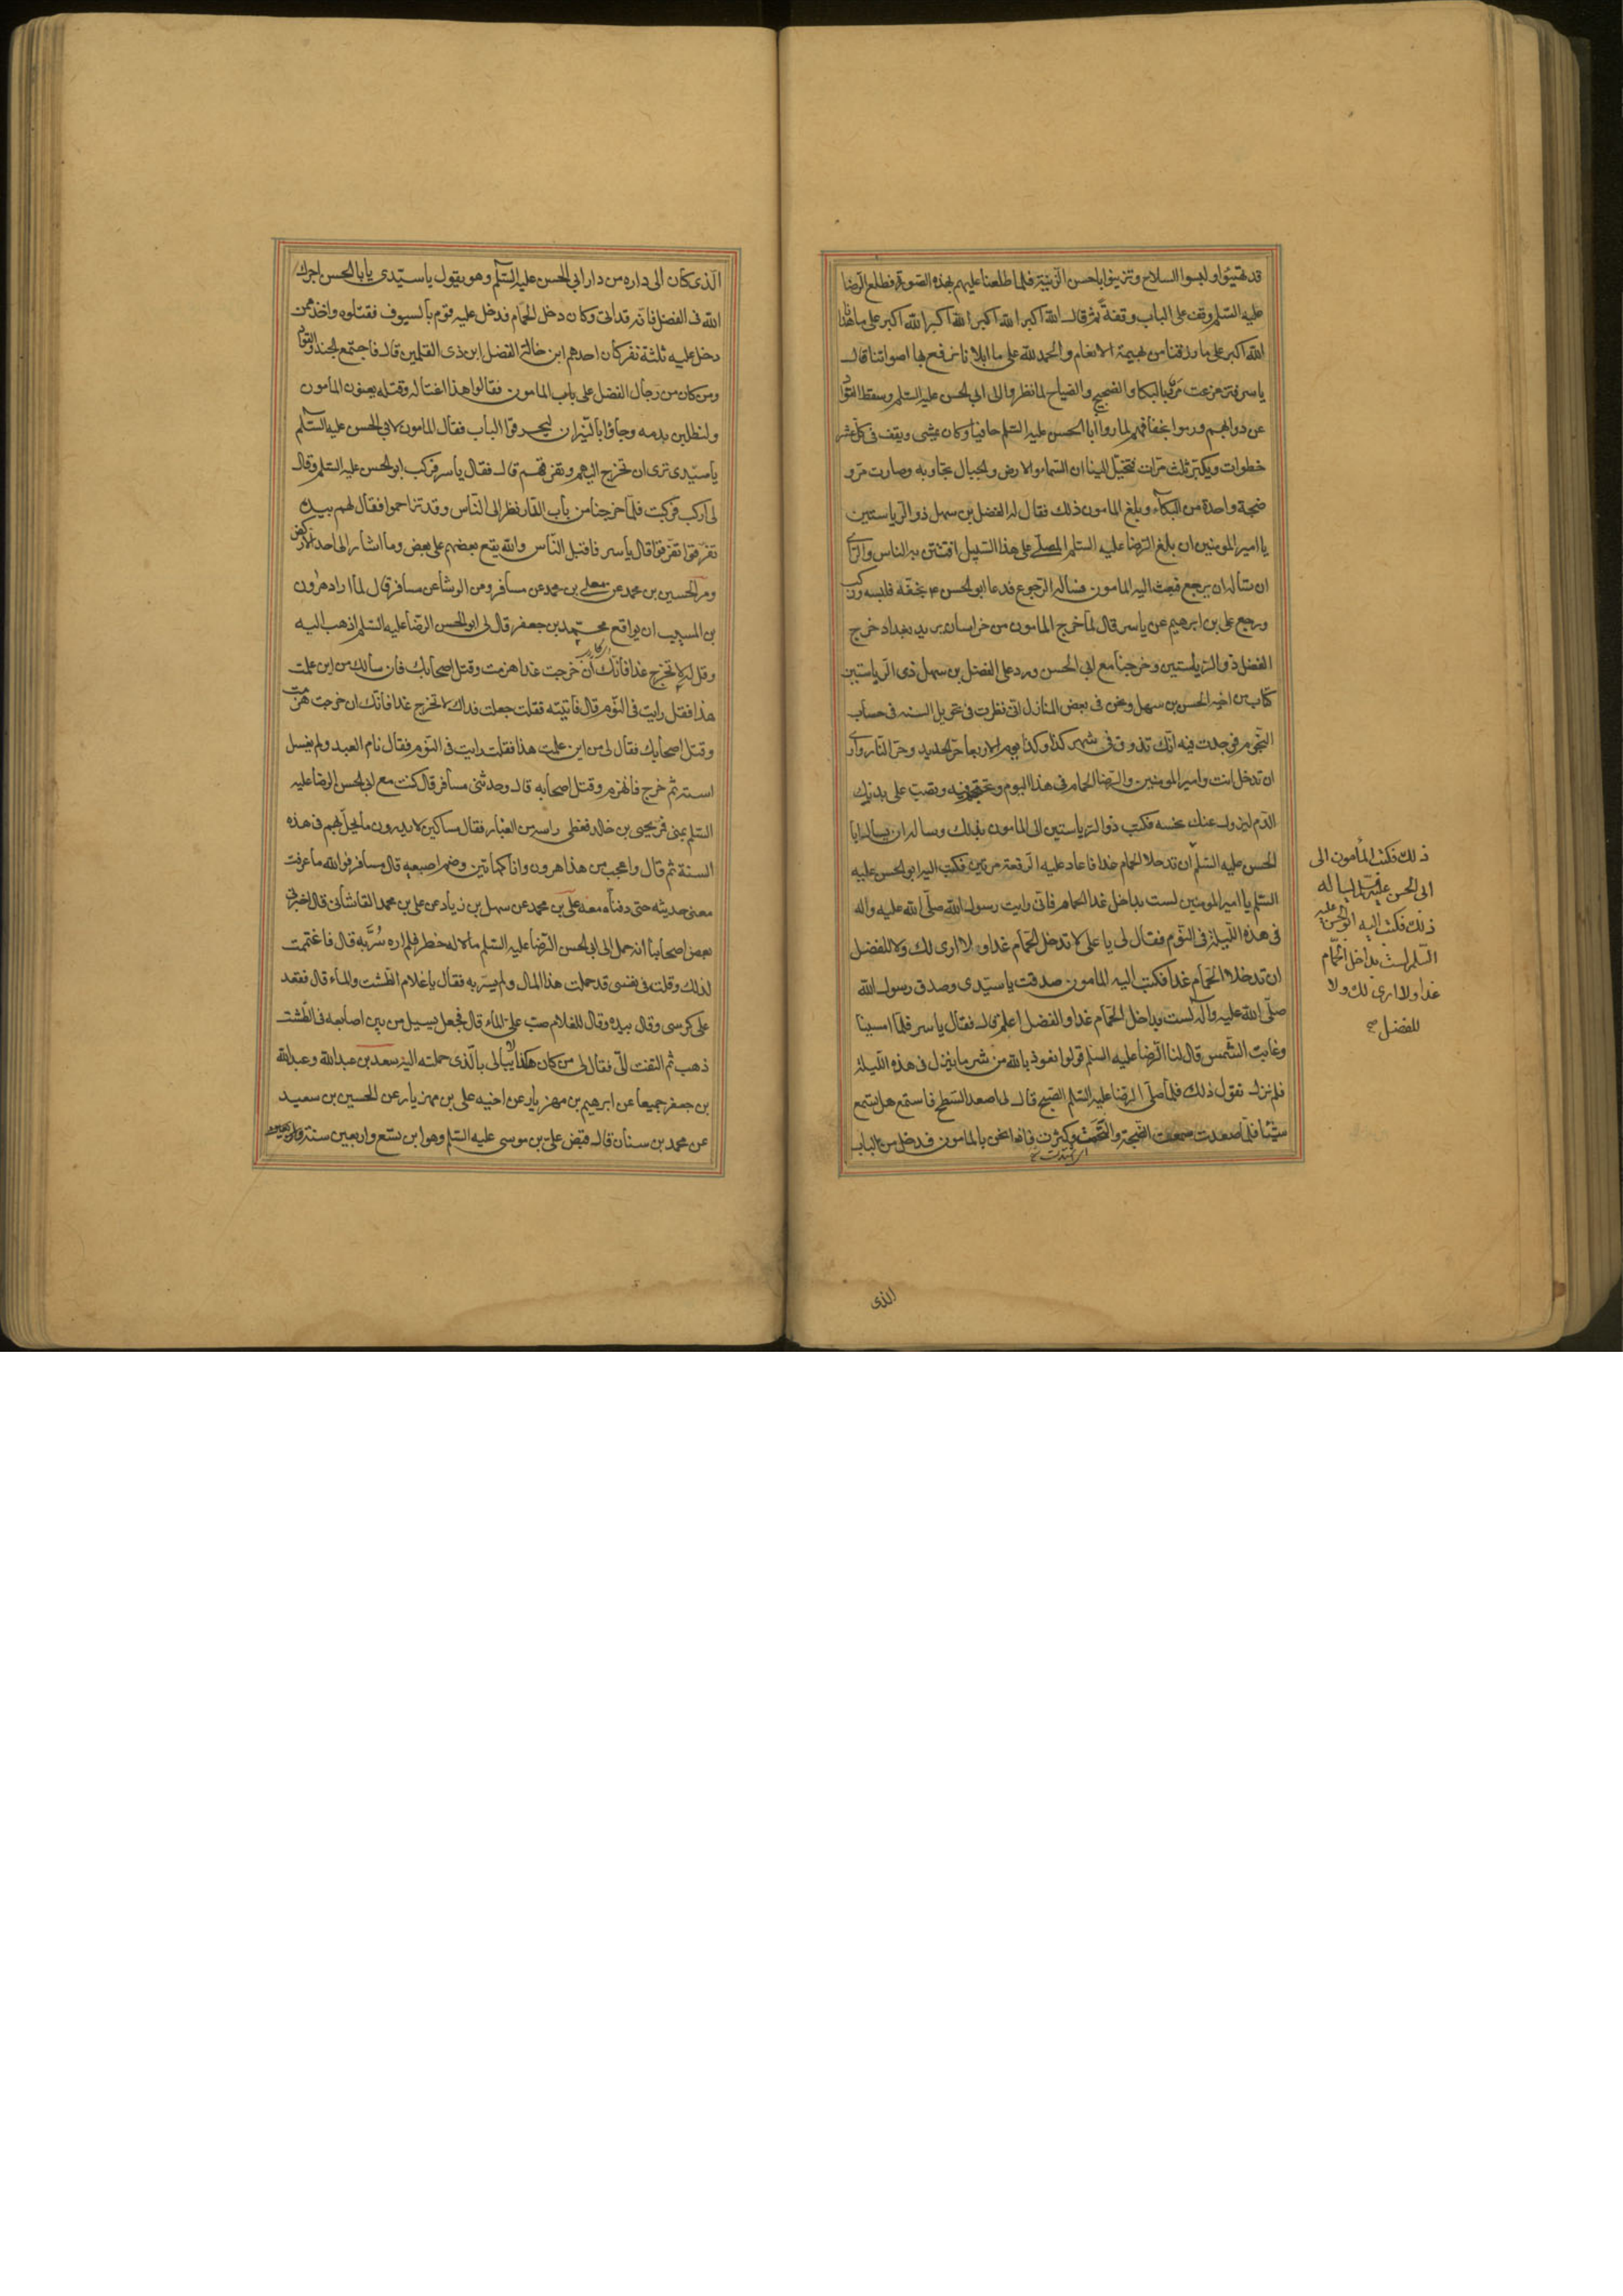 قد تهيئوا ولبسوا السلاح وتزينوا باحسن الزينة فلما طلعنا عليهم بهذه الصورة وطلع الرضا
عليه السلم وقف على الباب وقفة ثم قال الله اكبر الله اكبر الله اكبر الله اكبر على ما هدانا
الله اكبر على ما رزقنا من بهيمة الانعام والحمد لله على ما ابلانا نرفع بها اصواتنا قال
ياسر فتزعزعت مرو بالبكاء والضجيج والصياح لما نظروا الى ابي الحسن عليه السلم وسقط القواد
عن دوابهم ورموا بخفافهم لما راوا ابا الحسن عليه السلم حافيا وكان يمشى ويقف فى كل عشر
خطوات ويكبر ثلث مرات فتخيل الينا ان السماء والارض والجبال تجاوبه وصارت مرو
ضجة واحدة من البكاء وبلغ المامون ذلك فقال له الفضل بن سهل ذو الرياستين
يا امير المومنين ان بلغ الرضا عليه السلم المصلى على هذا السبيل افتتن به الناس والراى
ان تساله ان يرجع فبعث اليه المامون فساله الرجوع فدعا ابو الحسن ع بخفه فلبسه وركب
ورجع على بن ابرهيم عن ياسر قال لما خرج المامون من خراسان يريد بغداد خرج
الفضل ذو الرياستين وخرجنا مع ابي الحسن ورد على الفضل بن سهل ذى الرياستين
كتاب من اخيه الحسن بن سهل ونحن فى بعض المنازل انى نظرت فى تحويل السنه فى حساب
النجوم فوجدت فيه انك تذوق فى شهر كذا وكذا يوم الاربعا حر الحديد وحر النار وارى
ان تدخل انت وامير المومنين والرضا الحمام فى هذا اليوم وتحتجم فيه وتصب على يديك
الدم ليزول عنك نحسه فكتب ذو الرياستين الى المامون بذلك وساله ان يسال ابا
الحسن عليه السلم ان تدخلا الحمام غدا فاعاد عليه الرقعة مرتين فكتب اليه ابو الحسن عليه
السلم يا امير المومنين لست بداخل غدا الحمام فانى رايت رسول الله صلى الله عليه واله
فى هذه الليلة فى النوم فقال لى يا على لا تدخل الحمام غدا ولا ارى لك ولا للفضل
ان تدخلا الحمام غدا فكتب اليه المامون صدقت يا سيدى وصدق رسول الله
صلى الله عليه وآله لست بداخل الحمام غدا والفضل اعلم قال فقال ياسر فلما امسينا
وغابت الشمس قال لنا الرضا عليه السلم قولوا نعوذ بالله من شر ما ينزل فى هذه الليلة
فلم نزل نقول ذلك فلما صلى الرضا عليه السلم الصبح قال لى اصعد السطح فاستمع هل تسمع
شيئا فلما صعدت سمعت الضجة وكثرت فاذا نحن بالمامون قد دخل من الباب
ذلك فكتب المأمون الى
ابى الحسن يساله
ذلك فكتب اليه ابو الحسن عليه
السلم لست بداخل الحمام
غدا ولا ارى لك ولا
للفضل صح
الذى
الذى كان الى داره من دار ابى الحسن عليه السلم وهو يقول يا سيدى يا با الحسن اجرك
الله فى الفضل فانه قد ابى وكان دخل الحمام فدخل عليه قوم بالسيوف فقتلوه واخذ ممن
دخل عليه ثلثة نفر كان احدهم ابن خالة الفضل ابن ذى القلمين قال فاجتمع الجند والقواد
ومن كان من رجال الفضل على باب المامون فقالوا هذا اغتاله وقتله يعنون المامون
ولنطلبن بدمه وجاؤا بالنيران ليحرقوا الباب فقال المامون لابى الحسن عليه السلم
يا سيدى ترى ان تخرج اليهم وتفرقهم قال فقال ياسر فركب ابو الحسن عليه السلم وقال
لى اركب فركبت فلما خرجنا من باب الدار نظر الى الناس وقد تزاحموا فقال لهم بيده
تفرقوا تفرقوا قال ياسر فاقبل الناس والله يقع بعضهم على بعض وما اشار الى احد الا ركض
ومر الحسين بن محمد عن معلى بن محمد عن مسافر وعن الوشا عن مسافر قال لما اراد هرون
بن المسيب ان يواقع محمد بن جعفر قال لى ابو الحسن الرضا عليه السلم اذهب اليه
وقل له لا تخرج غدا فانك ان خرجت غدا هزمت وقتل اصحابك فان سالك من اين علمت
هذا فقل رايت فى النوم قال فاتيته فقلت جعلت فداك لا تخرج غدا فانك ان خرجت هزمت
وقتل اصحابك فقال لى من اين علمت هذا فقلت رايت فى النوم فقال نام العبد ولم يغسل
استه ثم خرج فانهزم وقتل اصحابه قال وحدثنى مسافر قال كنت مع ابى الحسن الرضا عليه
السلم بمنى فمر يحيى بن خالد فغطى راسه من الغبار فقال مساكين لا يدرون ما يحل بهم فى هذه
السنة ثم قال واعجب من هذا هرون وانا كهاتين وضم اصبعيه قال مسافر فوالله ما عرفت
معنى حديثه حتى دفناه معه على بن محمد عن سهل بن زياد عن على بن محمد القاشانى قال اخبرنى
بعض اصحابنا انه حمل الى ابى الحسن الرضا عليه السلم مالا له خطر فلم اره سر به قال فاغتممت
لذلك وقلت فى نفسى قد حملت هذا المال ولم يسر به فقال يا غلام الطشت والماء قال فقعد
على كرسى وقال بيده وقال للغلام صب على الماء قال فجعل يسيل من بين اصابعه فى الطشت
ذهب ثم التفت الى فقال لى من كان هكذا لا يبالى بالذى حملته اليه سعد بن عبد الله وعبد الله
بن جعفر جميعا عن ابرهيم بن مهزيار عن اخيه على بن مهزيار عن الحسين بن سعيد
عن محمد بن سنان قال قبض على بن موسى عليه السلم وهو ابن تسع واربعين سنة